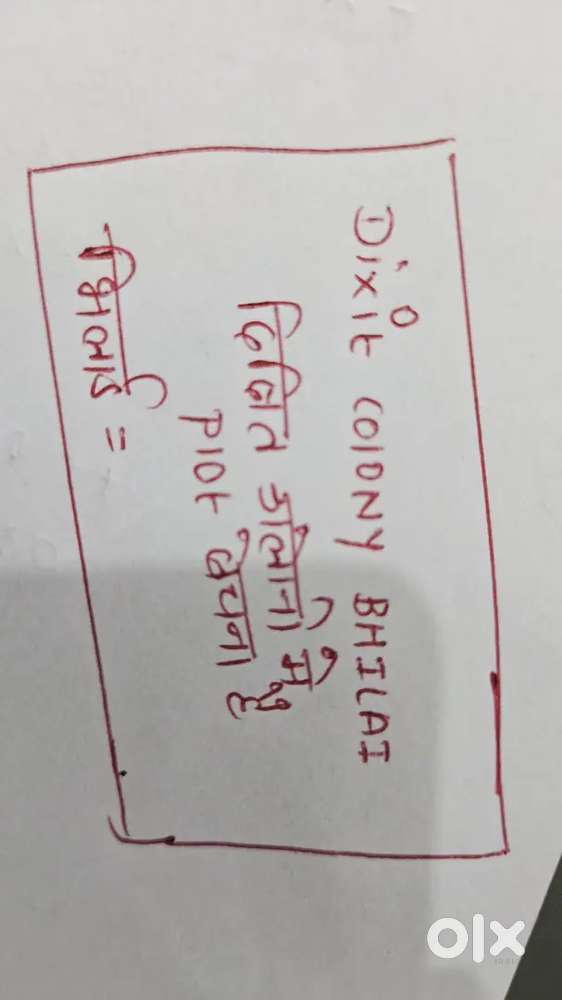 Dixit COLONY BHILAI
दिक्षित कॉलोनी में
PLOt बेचना है
भिलाई =
olx
INDIA